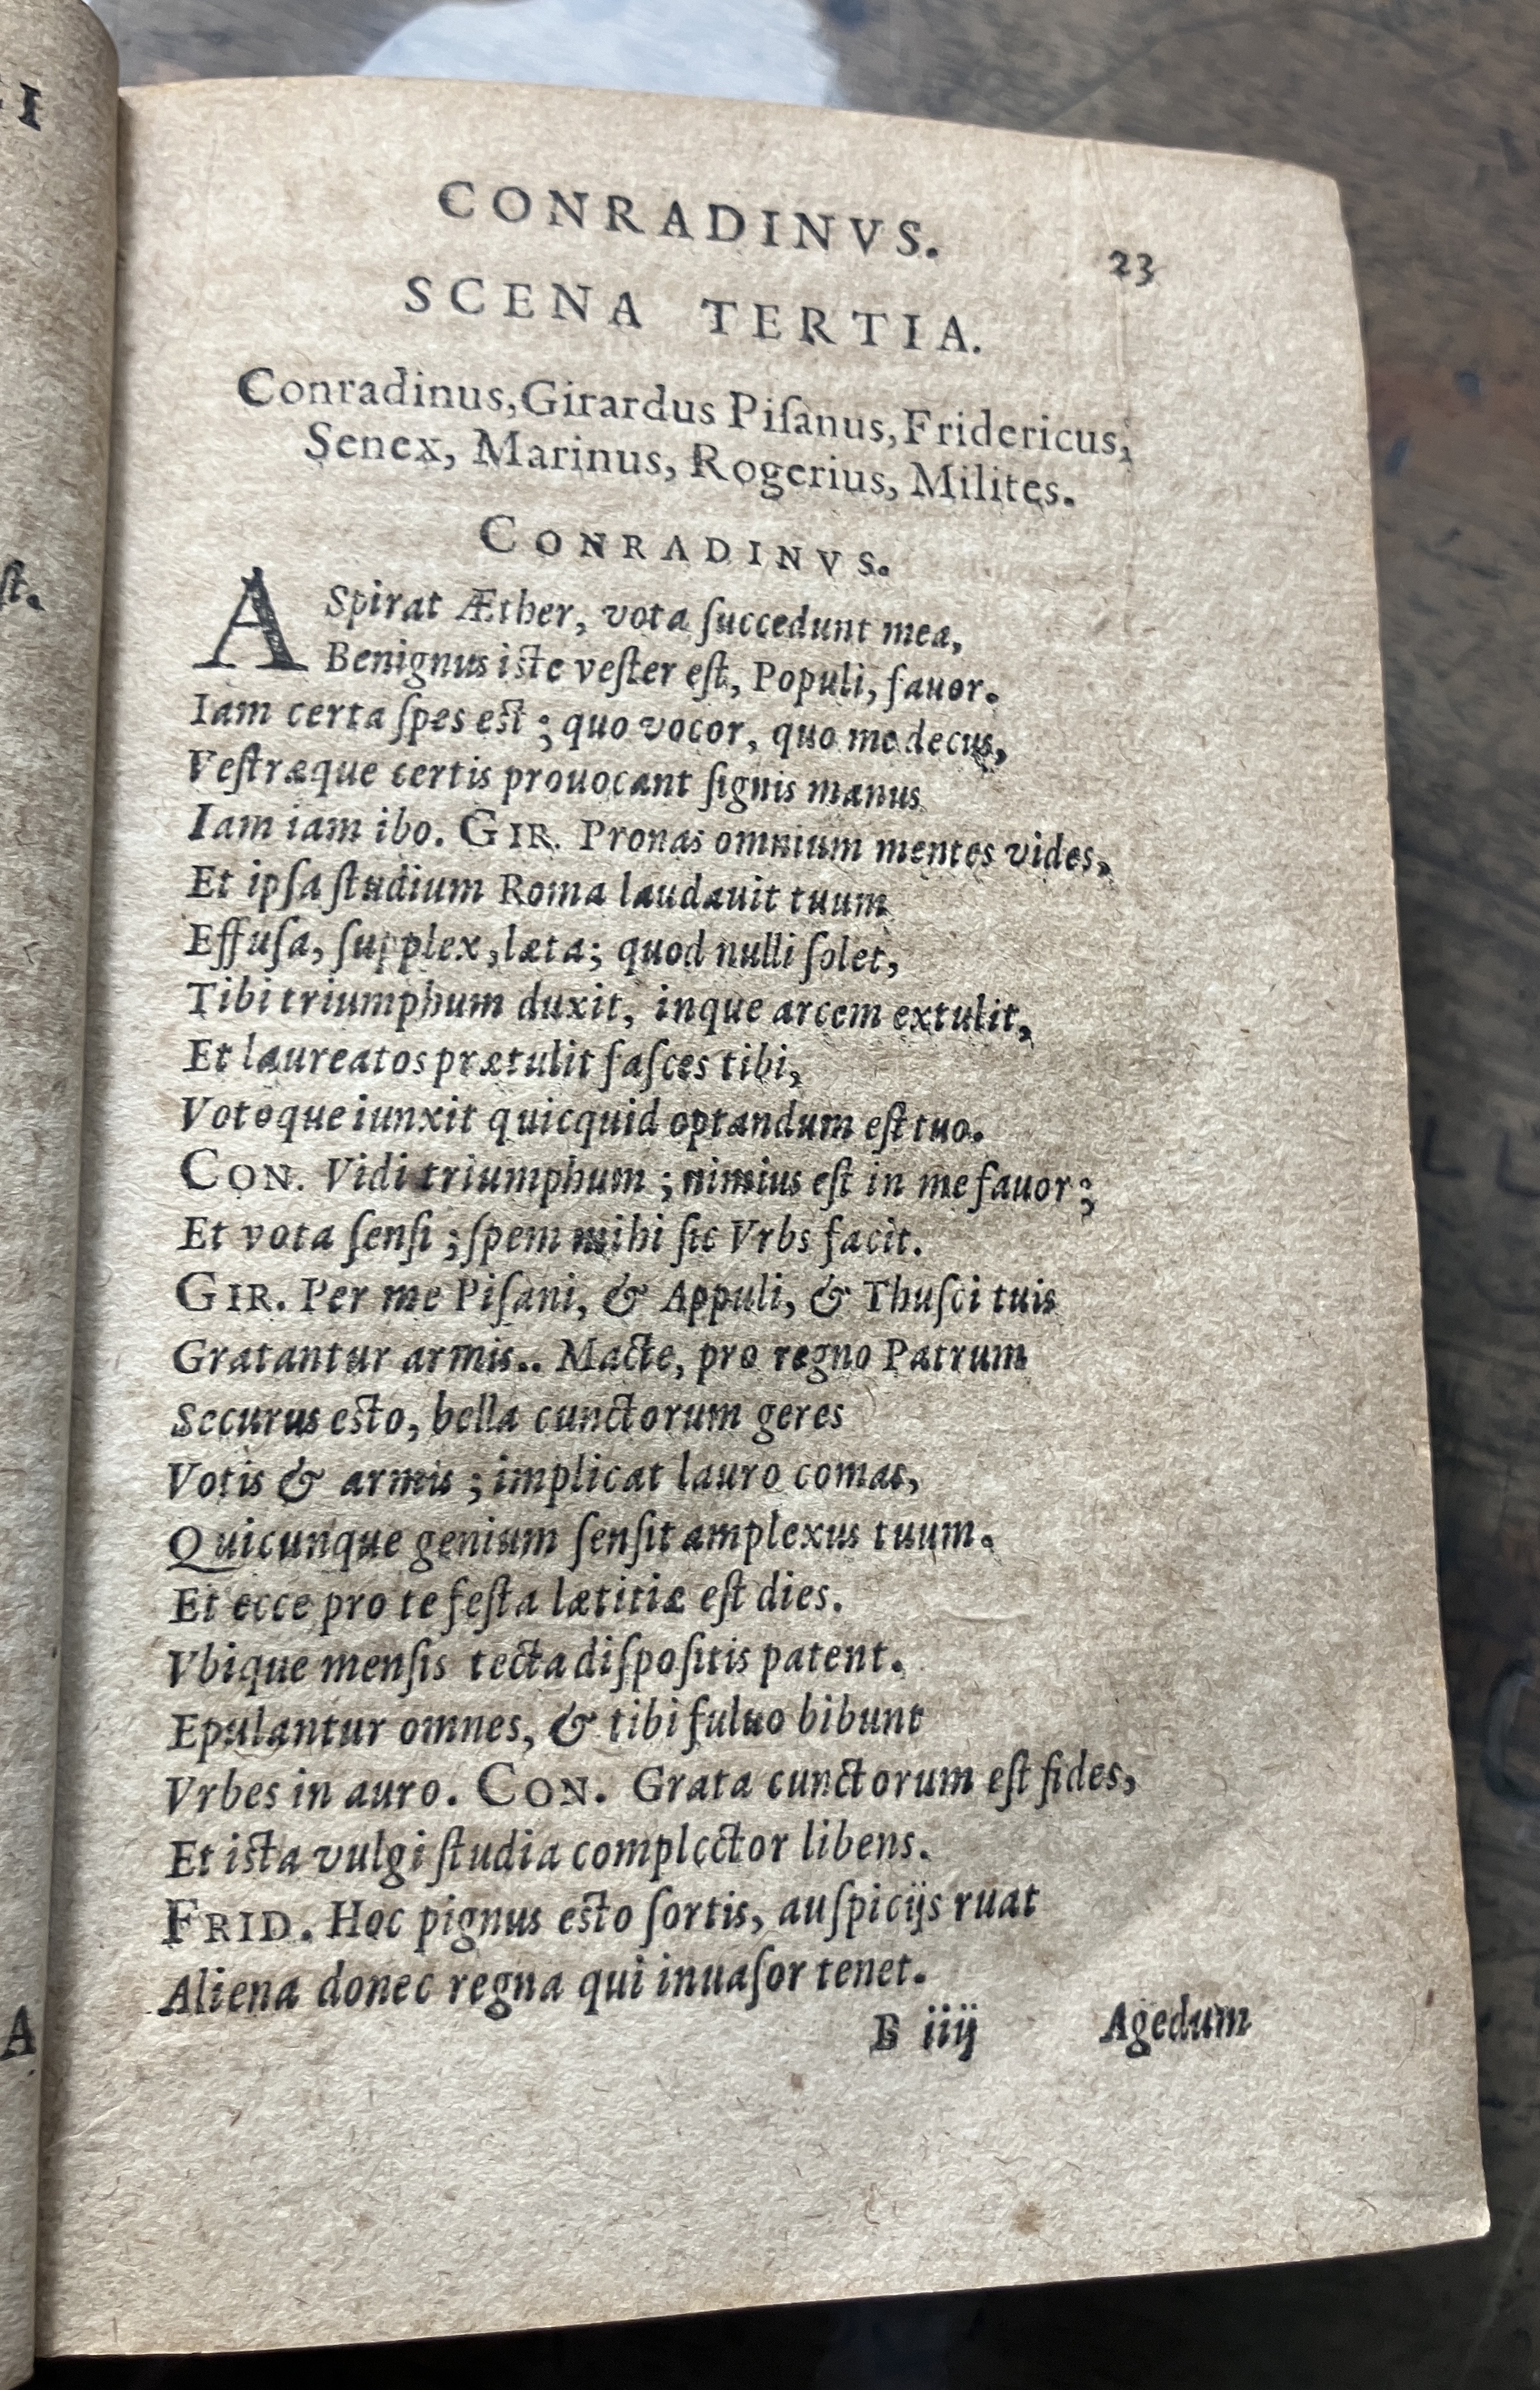 I
ſt.
A
CONRADINVS.
23
SCENA TERTIA.
Conradinus, Girardus Piſanus, Fridericus,
Senex, Marinus, Rogerius, Milites.
CONRADINVS.
ASpirat Æther, vota ſuccedunt mea,
Benignus iste veſter eſt, Populi, fauor.
Iam certa ſpes est; quo vocor, quo me decus,
Veſtræque certis prouocant ſignis manus
Iam iam ibo. GIR. Pronas omnium mentes vides,
Et ipſa ſtudium Roma laudauit tuum
Effuſa, ſupplex, læta; quod nulli ſolet,
Tibi triumphum duxit, inque arcem extulit,
Et laureatos prætulit faſces tibi,
Votoque iunxit quicquid optandum eſt tuo.
CON. Vidi triumphum; nimius eſt in me fauor;
Et vota ſenſi; ſpem mihi ſic Vrbs facit.
GIR. Per me Piſani, & Appuli, & Thuſci tuis
Gratantur armis.. Macte, pro regno Patrum
Securus esto, bella cunctorum geres
Votis & armis; implicat lauro comas,
Quicunque genium ſenſit amplexus tuum.
Et ecce pro te feſta lætitiæ eſt dies.
Vbique menſis tecta diſpoſitis patent.
Epulantur omnes, & tibi fuluo bibunt
Vrbes in auro. CON. Grata cunctorum eſt fides,
Et ista vulgi ſtudia complector libens.
FRID. Hoc pignus esto ſortis, auſpicijs ruat
Aliena donec regna qui inuaſor tenet.
B iiij
Agedum